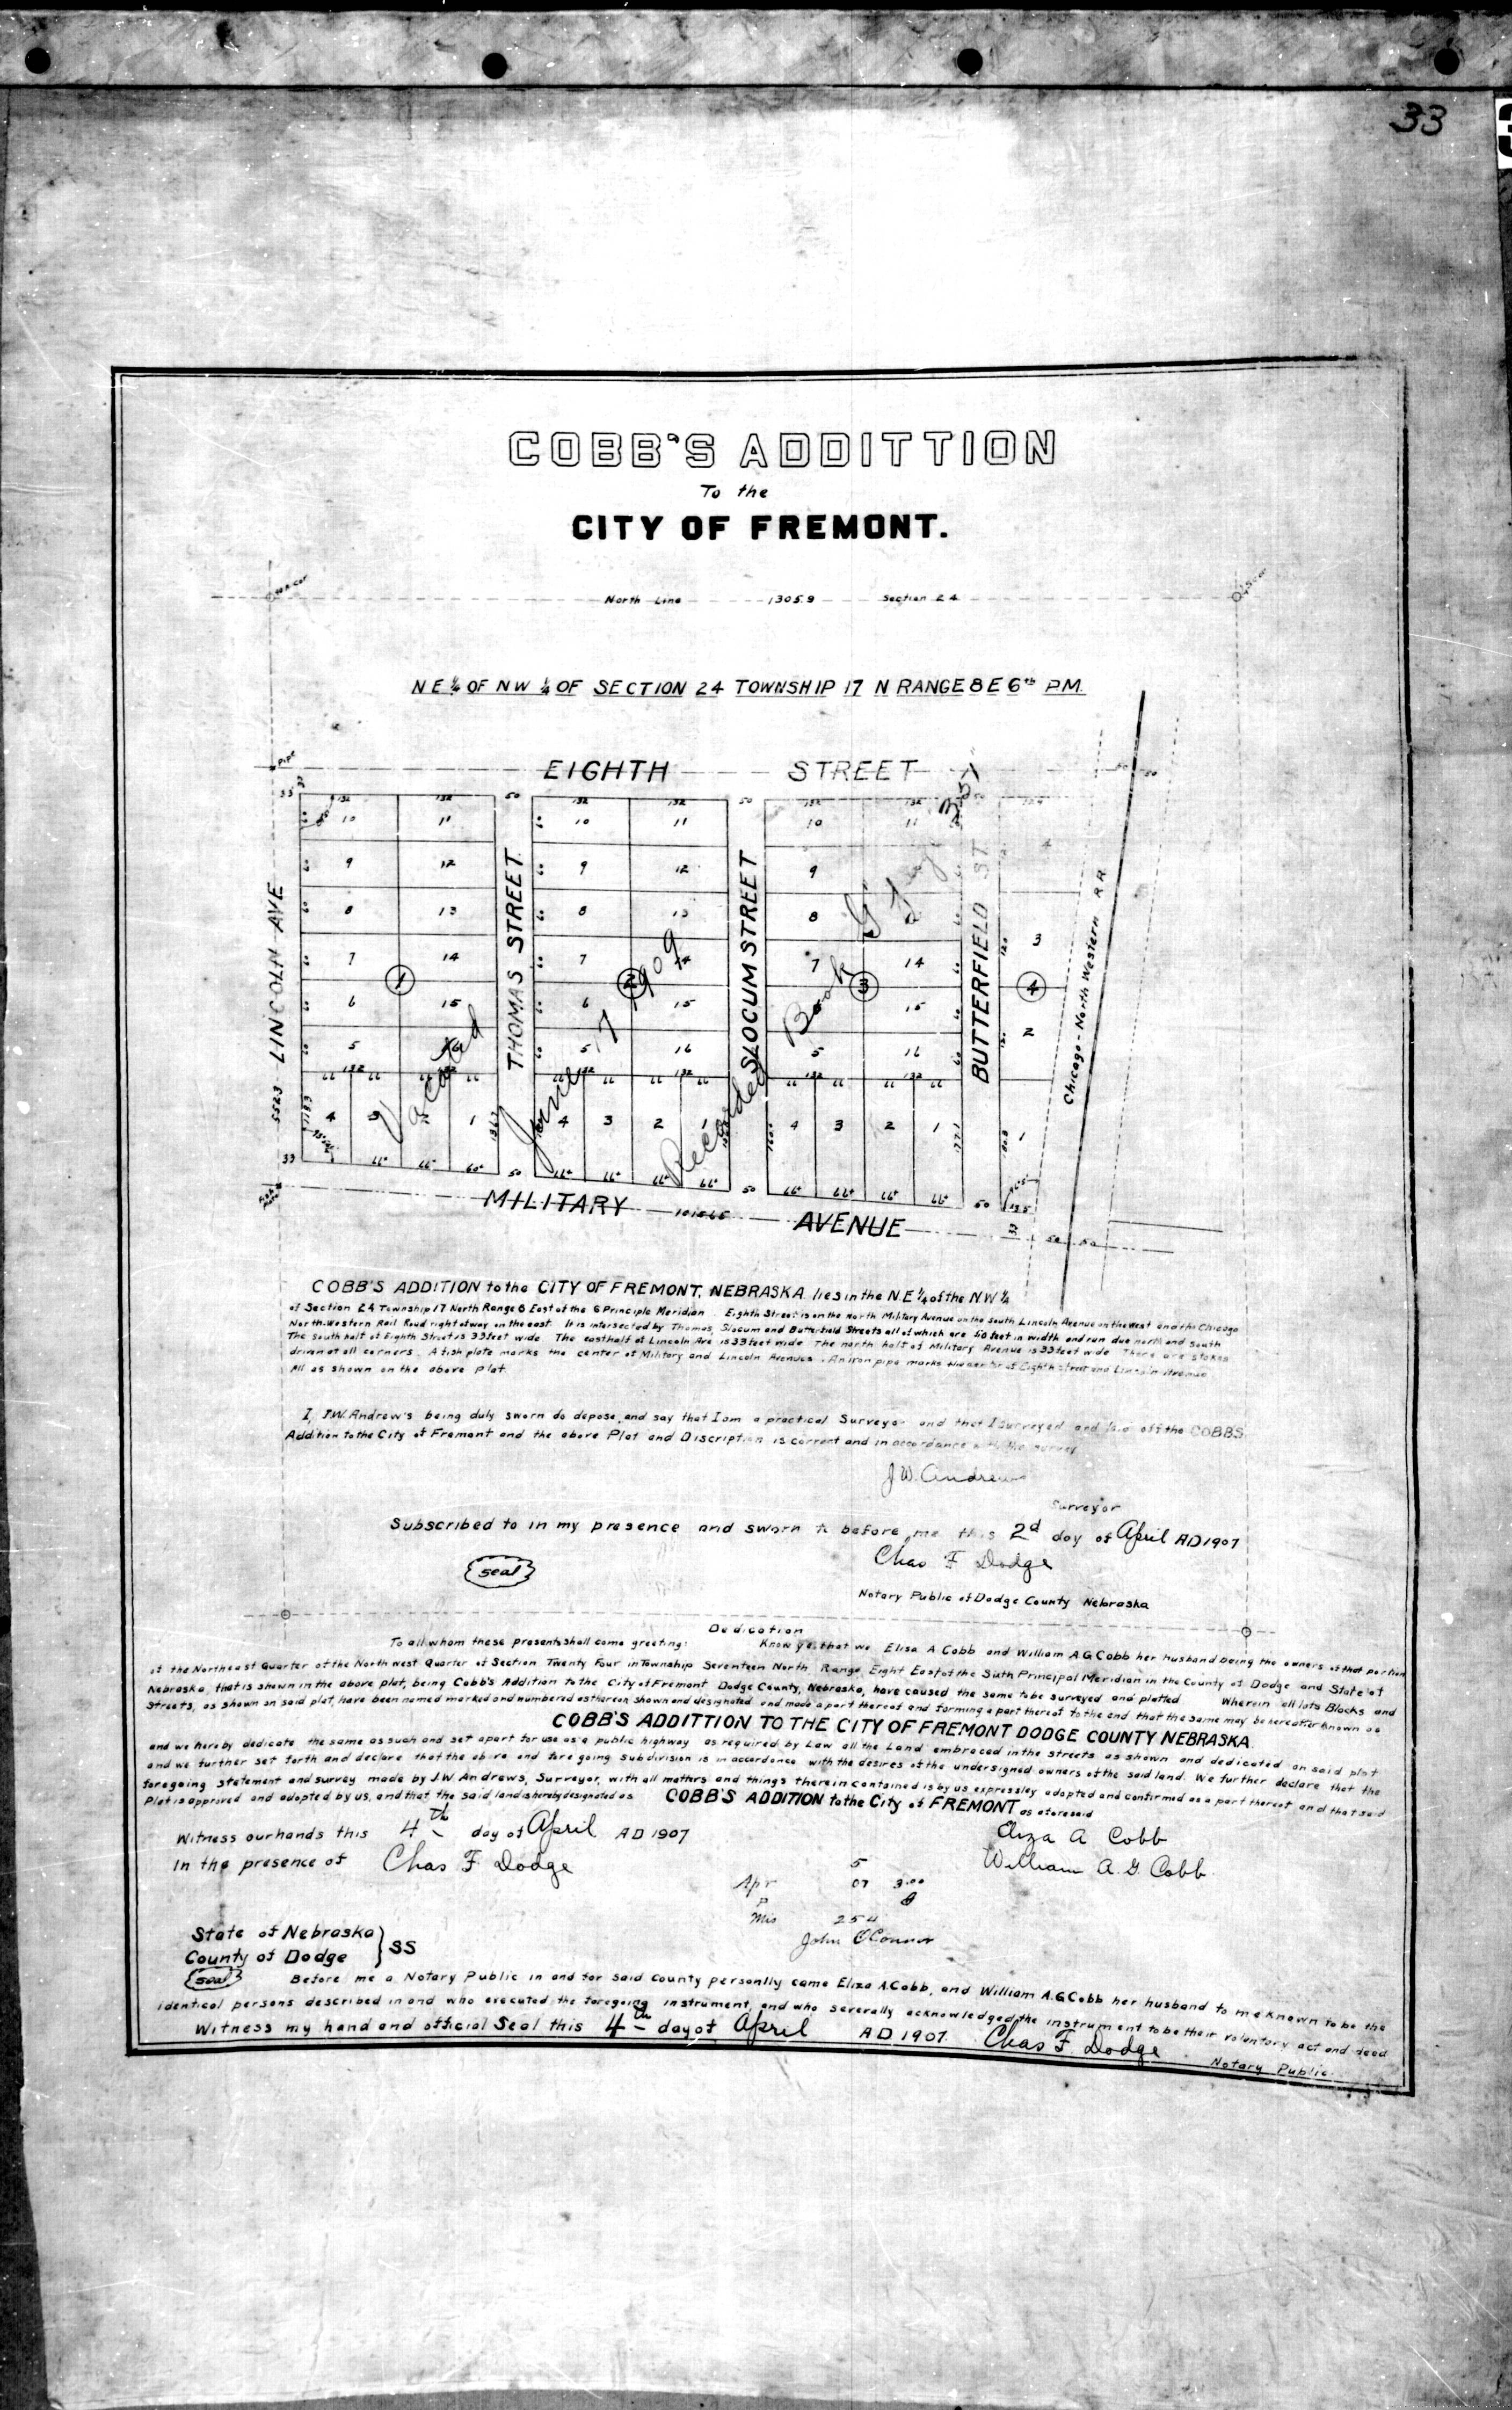 33
COBB'S ADDITTION
To the
CITY OF FREMONT.
North Line 1305.9 Section 24
N E ¼ OF NW ¼ OF SECTION 24 TOWNSHIP 17 N RANGE 8 E 6th P.M.
Pipe
EIGHTH STREET
50 50
33 132 132 50 132 132 50 132 132 50
10 11 10 11 10 11
9 12 9 12 9
8 13 8 13 8
7 14 7 14 7 14
1 2 3 4
6 15 6 15 15
5 16 5 16 5 16
3
2
4 3 2 1 4 3 2 1 4 3 2 1 1
LINCOLN AVE
THOMAS STREET
SLOCUM STREET
BUTTERFIELD ST
Chicago - North Western R R
Vacated June 17 1909
Recorded Book G Page 357
33 66 66 50 66 66 50 66 66 66 66 50
MILITARY AVENUE
COBB'S ADDITION to the CITY OF FREMONT, NEBRASKA lies in the N.E ¼ of the N.W ¼
of Section 24 Township 17 North Range 8 East of the 6 Principle Meridian. Eighth Street is on the north Military Avenue on the south Lincoln Avenue on the West and the Chicago
North-Western Rail Road right of way on the east. It is intersected by Thomas, Slocum and Butterfield Streets all of which are 50 feet in width and run due north and south
The south half of Eighth Street is 33 feet wide The east half of Lincoln Ave is 33 feet wide The north half of Military Avenue is 33 feet wide There are stakes
driven at all corners. A fish plate marks the center of Military and Lincoln Avenues. An iron pipe marks the center of Eighth street and Lincoln Avenue
All as shown on the above plat
I, J.W. Andrew's being duly sworn do depose, and say that I am a practical Surveyor and that I surveyed and laid off the COBBS
Addition to the City of Fremont and the above Plat and Discription is correct and in accordance with the survey
J.W. Andrews
Surveyor
Subscribed to in my presence and sworn to before me this 2d day of April AD 1907
Chas F Dodge
seal
Notary Public of Dodge County Nebraska
Dedication
To all whom these presents shall come greeting: Know ye that we Elisa A Cobb and William A G Cobb her husband being the owners of that portion
of the Northeast Quarter of the North west Quarter of Section Twenty Four in Township Seventeen North Range Eight East of the Sixth Principal Meridian in the County of Dodge and State of
Nebraska, that is shown in the above plat, being Cobb's Addition to the City of Fremont Dodge County, Nebraska, have caused the same to be surveyed and platted Wherein all lots Blocks and
Streets, as shown on said plat, have been named marked and numbered as thereon shown and designated and made a part thereof and forming a part thereof to the end that the same may be hereafter known as
COBB'S ADDITTION TO THE CITY OF FREMONT DODGE COUNTY NEBRASKA.
and we hereby dedicate the same as such and set apart for use as a public highway as required by Law all the Land embraced in the streets as shown and dedicated on said plat
and we further set forth and declare that the above and fore going subdivision is in accordance with the desires of the undersigned owners of the said land. We further declare that the
foregoing statement and survey made by J.W. Andrews, Surveyor, with all matters and things therein contained is by us expressley adopted and confirmed as a part thereof and that said
Plat is approved and adopted by us, and that the said land is hereby designated as COBB'S ADDITION to the City of FREMONT as aforesaid
Witness our hands this 4th day of April AD 1907
Eliza A Cobb
In the presence of Chas F. Dodge
William A. G. Cobb
5
Apr 07 3.00
P
Mis 254
John O'Connor
State of Nebraska
County of Dodge } SS
seal
Before me a Notary Public in and for said County personlly came Eliza A. Cobb, and William A.G Cobb her husband to me known to be the
identical persons described in and who executed the foregoing instrument, and who severally acknowledged the instrument to be their voluntary act and deed
Witness my hand and official Seal this 4th day of April AD 1907. Chas F. Dodge Notary Public.